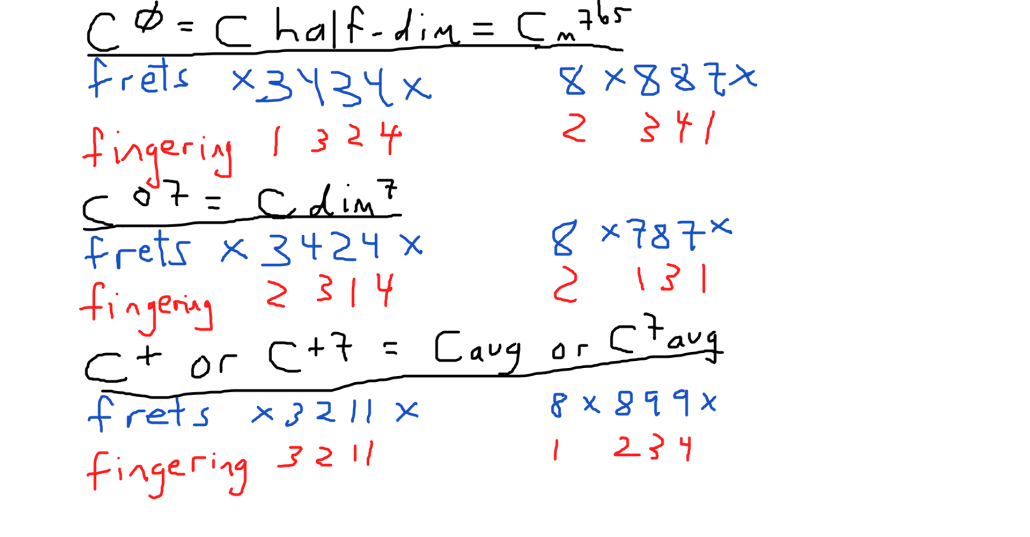 Cø = C half-dim = Cm7b5
frets x3434x 8x887x
fingering 1324 2 341
Co7 = Cdim7
frets x3424x 8x787x
fingering 2314 2 131
C+ or C+7 = Caug or C7aug
frets x3211x 8x899x
fingering 3211 1 234